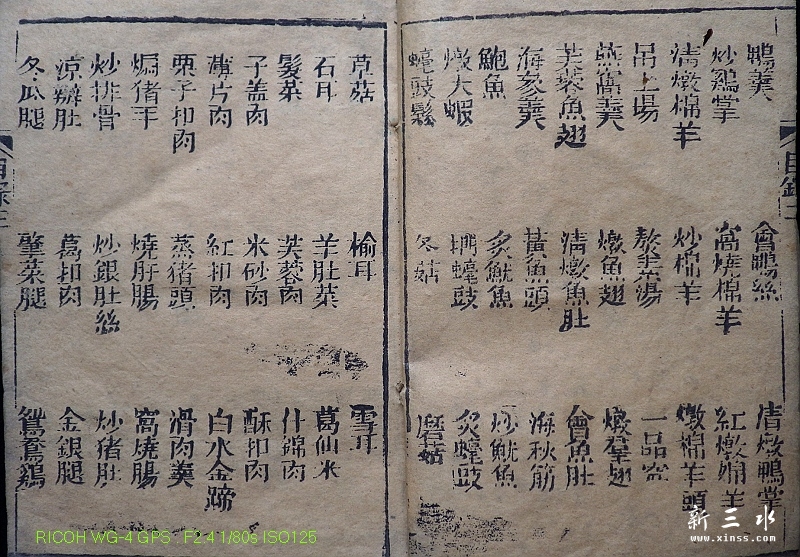 目錄二
鴨羹 會鴨絲 清燉鴨掌
炒鷄掌 窩燒棉羊 紅燉綿羊
清燉棉羊 炒棉羊 燉棉羊頭
吊上場 一品窩
燕窩羹 燉魚翅 燉羣翅
芙蓉魚翅 清燉魚肚 會魚肚
海參羹 黃魚頭 海秋筋
鮑魚 炙魷魚 炒魷魚
燉大蝦 蟶豉 炙蟶豉
蟶豉鬆 冬菇 磨菇
草菇 榆耳 雪耳
石耳 羊肚菜 葛仙米
髮菜 芙蓉肉 什錦肉
子盖肉 米砂肉 酥扣肉
薄片肉 紅扣肉 白水金蹄
栗子扣肉 蒸猪頭 滑肉羹
焗猪手 燒肝腸 窩燒腸
炒排骨 炒銀肚絲 炒猪肚
涼辦肚 葛扣肉 金銀腿
冬瓜腿 肇菜腿 鴛鴦鷄
目錄三
RICOH WG-4 GPS F2.4 1/80s ISO125
新三水
www.xinss.com